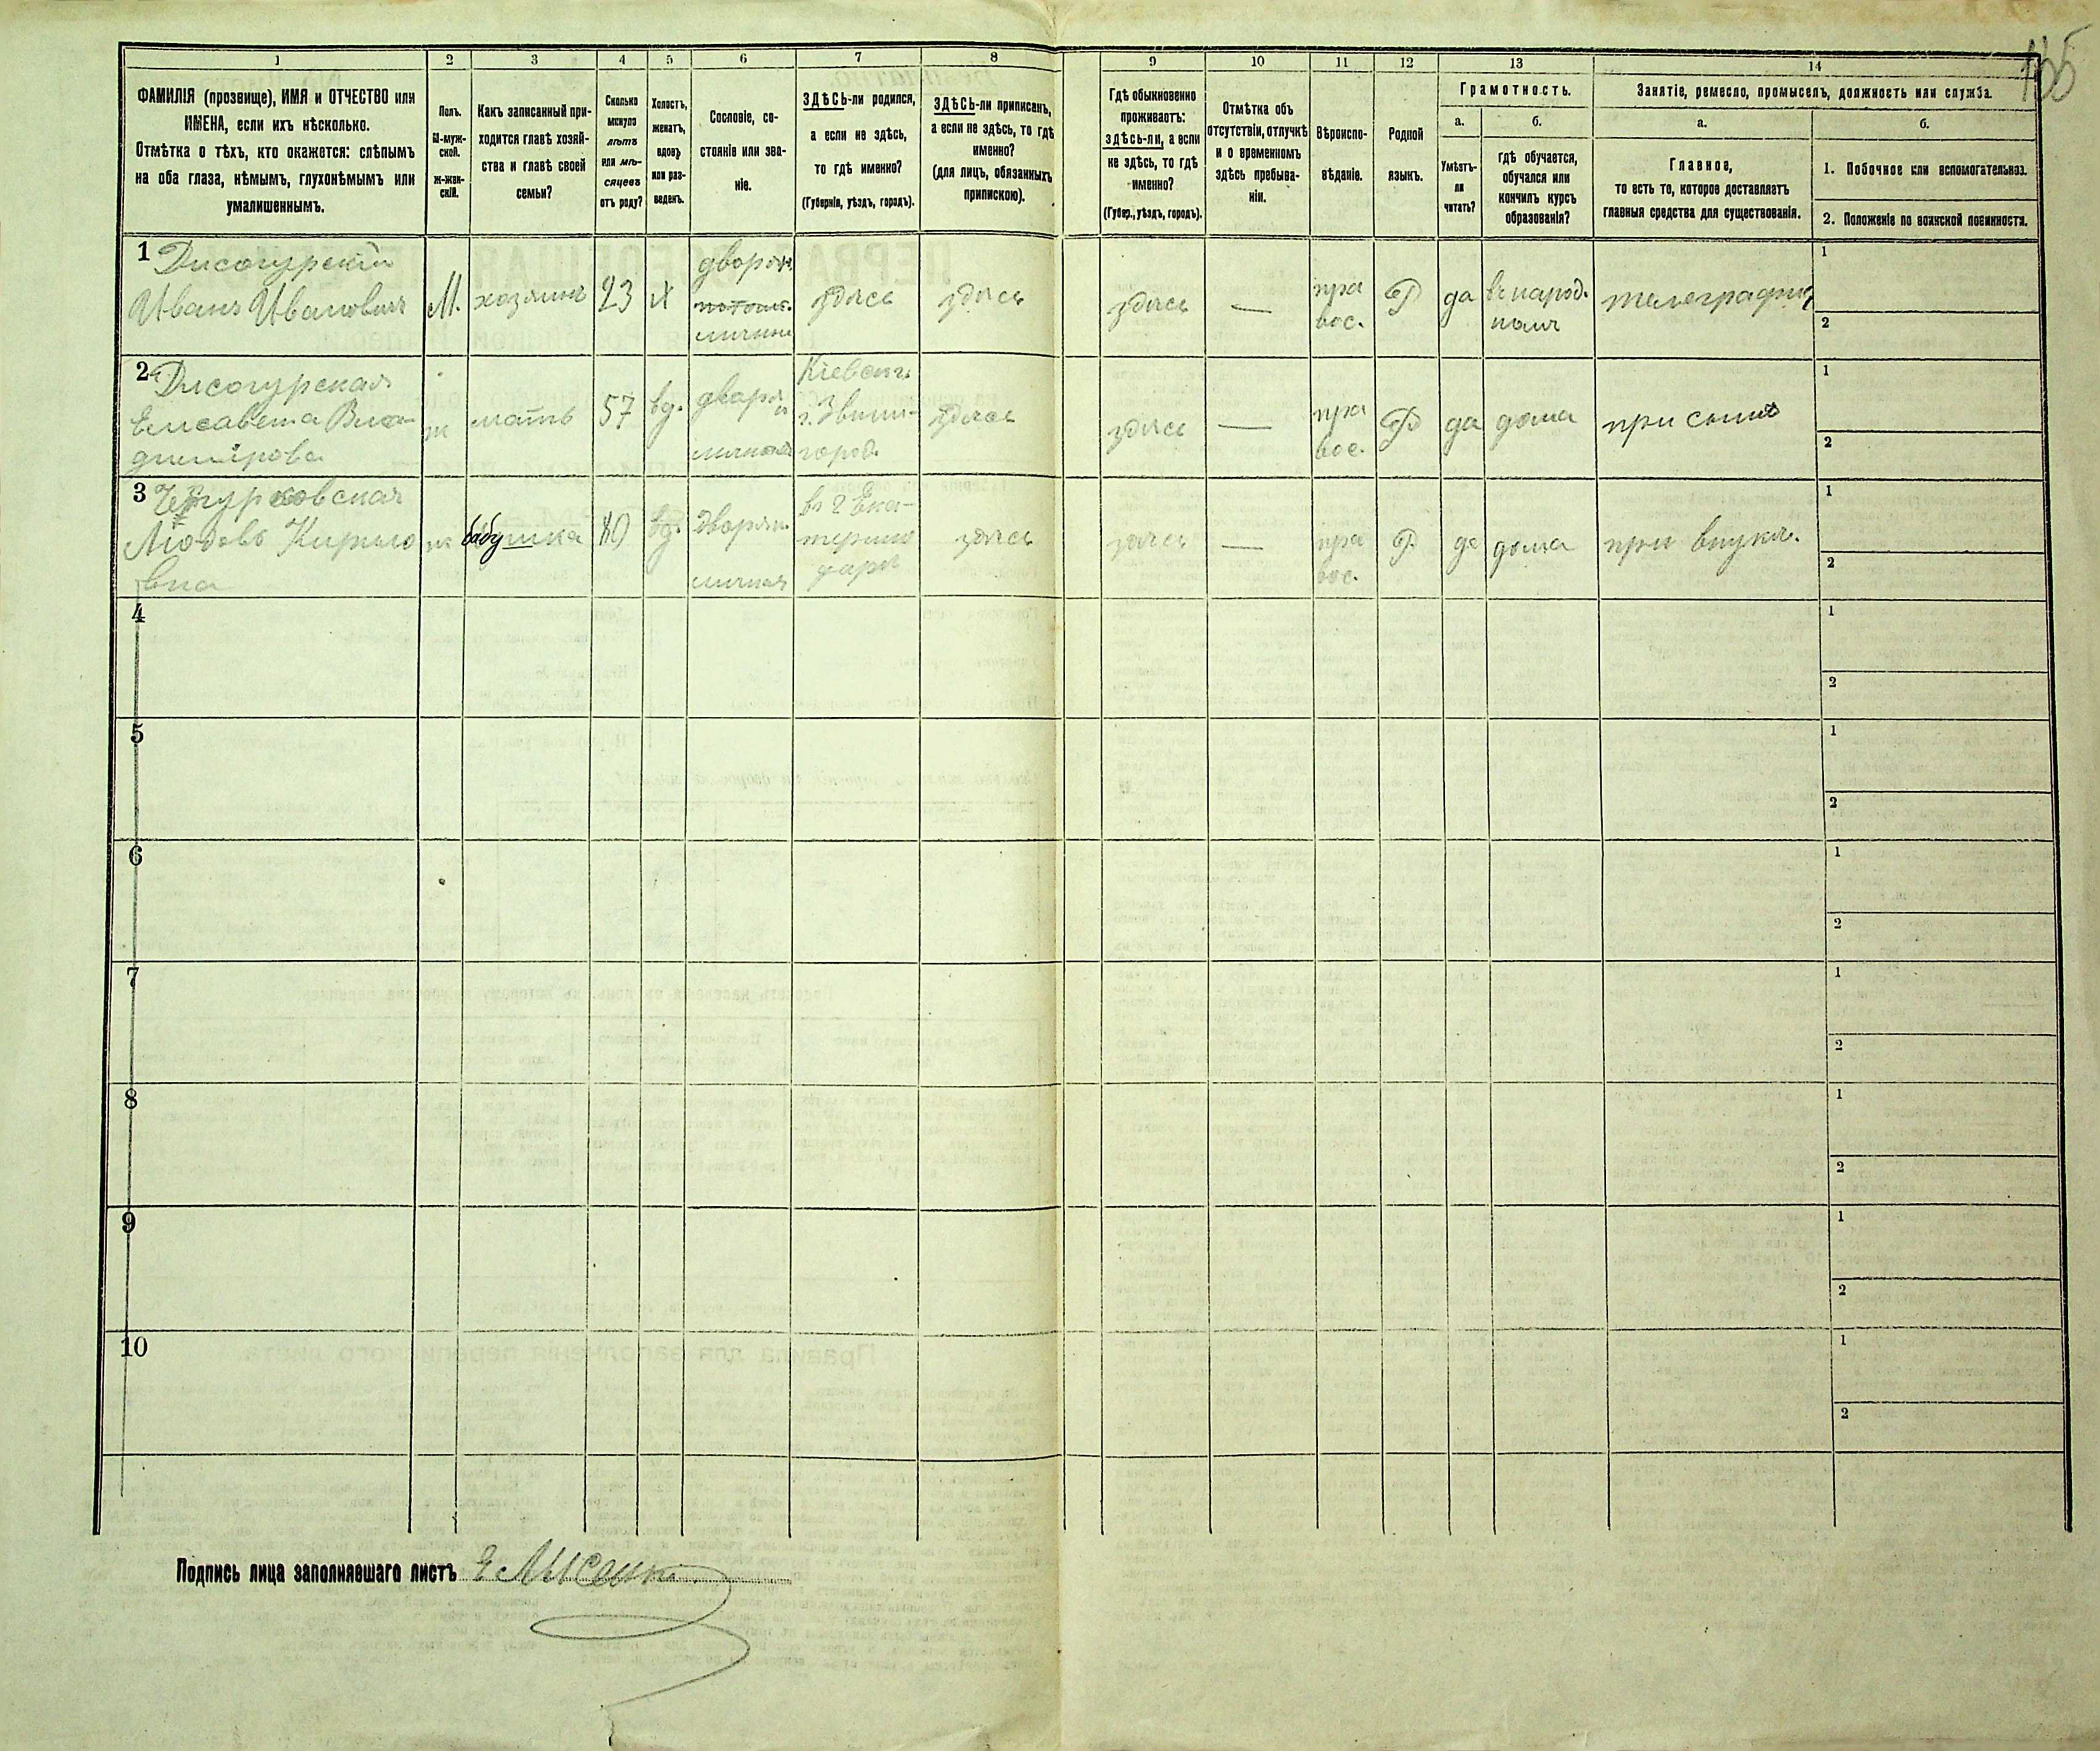 135
1
2
3
4
5
6
7
8
9
10
11
12
13
14
ФАМИЛІЯ (прозвище), ИМЯ и ОТЧЕСТВО или
ИМЕНА, если ихъ нѣсколько.
Отмѣтка о тѣхъ, кто окажется: слѣпымъ
на оба глаза, нѣмымъ, глухонѣмымъ или
умалишеннымъ.
Полъ.
М-муж-
ской.
Ж-жен-
скій.
Какъ записанный при-
ходится главѣ хозяй-
ства и главѣ своей
семьи?
Сколько
минуло
лѣтъ
или мѣ-
сяцевъ
отъ роду?
Холостъ,
женатъ,
вдовъ
или раз-
веденъ.
Сословіе, со-
стояніе или зва-
ніе.
ЗДѢСЬ-ли родился,
а если не здѣсь,
то гдѣ именно?
(Губернія, уѣздъ, городъ).
ЗДѢСЬ-ли приписанъ,
а если не здѣсь, то гдѣ
именно?
(для лицъ, обязанныхъ
припискою).
Гдѣ обыкновенно
проживаетъ:
здѣсь-ли, а если
не здѣсь, то гдѣ
именно?
(Губер., уѣздъ, городъ).
Отмѣтка объ
отсутствіи, отлучкѣ
и о временномъ
здѣсь пребыва-
ніи.
Вѣроиспо-
вѣданіе.
Родной
языкъ.
Грамотность.
а.
Умѣетъ-
ли
читать?
б.
гдѣ обучается,
обучался или
кончилъ курсъ
образованія?
Занятіе, ремесло, промыселъ, должность или служба.
а.
Главное,
то есть то, которое доставляетъ
главныя средства для существованія.
б.
1. Побочное или вспомогательное.
2. Положеніе по воинской повинности.
1
Иванъ Ивановичъ
М. хозяинъ 23 х
дворян.
потом.
личный
здѣсь здѣсь здѣсь —
пра
вос.
Р да
въ народ.
1
2
2
Елисавета Вла-
димірова
ж мать 57 вд.
дворян
личная
Кіевск. г.
г. Звени-
город.
здѣсь здѣсь —
пра
вос.
Р да дома при сынѣ
1
2
3
Любовь Кирило
вна
ж бабушка 80 вд.
дворян.
личная
въ г Ека-
терино
даръ
здѣсь здѣсь —
пра
вос.
Р да дома при внукѣ.
1
2
4
1
2
5
1
2
6
1
2
7
1
2
8
1
2
9
1
2
10
1
2
Подпись лица заполнявшаго листъ